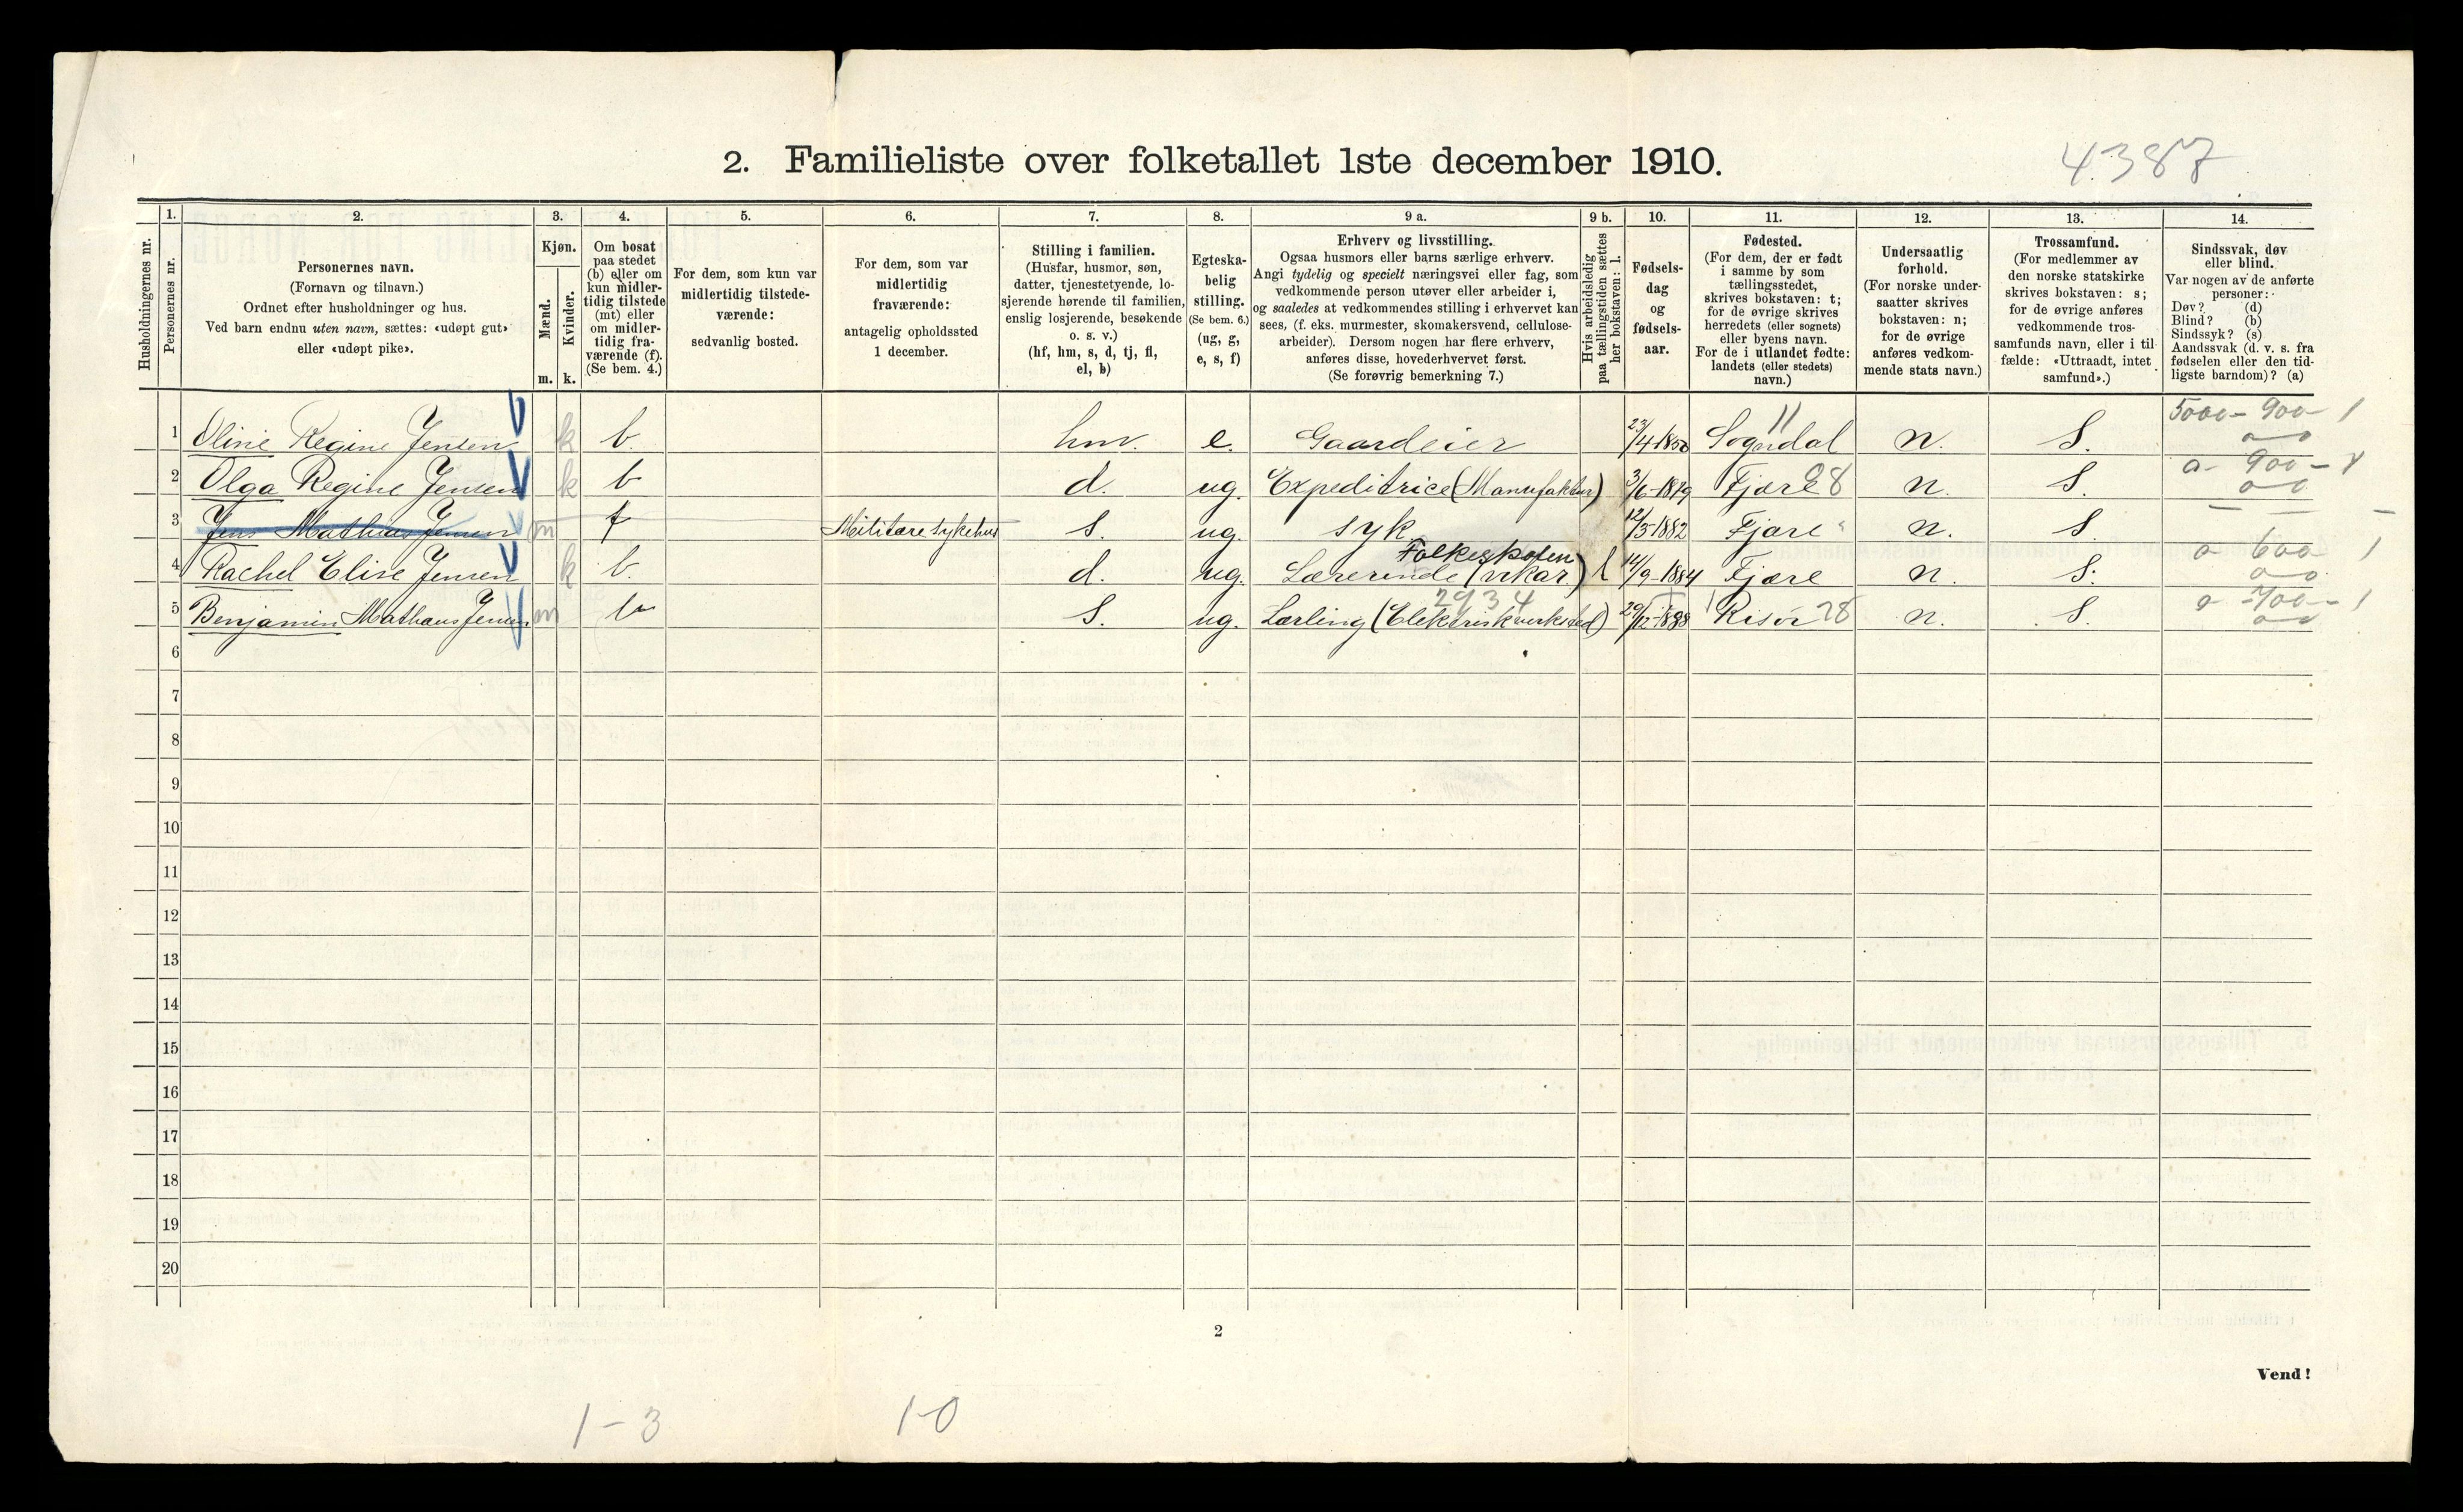 2. Familieliste over folketallet 1ste december 1910.
4387
Husholdningernes nr.
1.
Personernes nr.
2.
Personernes navn.
(Fornavn og tilnavn.)
Ordnet efter husholdninger og hus.
Ved barn endnu uten navn, sættes: «udøpt gut»
eller «udøpt pike».
3.
Kjøn.
Mænd.
Kvinder.
m.
k.
4.
Om bosat
paa stedet
(b) eller om
kun midler-
tidig tilstede
(mt) eller
om midler-
tidig fra-
værende (f).
(Se bem. 4.)
5.
For dem, som kun var
midlertidig tilstede-
værende:
sedvanlig bosted.
6.
For dem, som var
midlertidig
fraværende:
antagelig opholdssted
1 december.
7.
Stilling i familien.
(Husfar, husmor, søn,
datter, tjenestetyende, lo-
sjerende hørende til familien,
enslig losjerende, besøkende
o. s. v.)
(hf, hm, s, d, tj, fl,
el, b)
8.
Egteska-
belig
stilling.
(Se bem. 6.)
(ug, g,
e, s, f)
9 a.
Erhverv og livsstilling.
Ogsaa husmors eller barns særlige erhverv.
Angi tydelig og specielt næringsvei eller fag, som
vedkommende person utøver eller arbeider i,
og saaledes at vedkommendes stilling i erhvervet kan
sees, (f. eks. murmester, skomakersvend, cellulose-
arbeider). Dersom nogen har flere erhverv,
anføres disse, hovederhvervet først.
(Se forøvrig bemerkning 7.)
9 b.
Hvis arbeidsledig
paa tællingstiden sættes
her bokstaven: l.
10.
Fødsels-
dag
og
fødsels-
aar.
11.
Fødested.
(For dem, der er født
i samme by som
tællingsstedet,
skrives bokstaven: t;
for de øvrige skrives
herredets (eller sognets)
eller byens navn.
For de i utlandet fødte:
landets (eller stedets)
navn.)
12.
Undersaatlig
forhold.
(For norske under-
saatter skrives
bokstaven: n;
for de øvrige
anføres vedkom-
mende stats navn.)
13.
Trossamfund.
(For medlemmer av
den norske statskirke
skrives bokstaven: s;
for de øvrige anføres
vedkommende tros-
samfunds navn, eller i til-
fælde: «Uttraadt, intet
samfund».)
14.
Sindssvak, døv
eller blind.
Var nogen av de anførte
personer:
Døv? (d)
Blind? (b)
Sindssyk? (s)
Aandssvak (d. v. s. fra
fødselen eller den tid-
ligste barndom)? (a)
1 Oline Regine Jensen k b. hm. e. Gaardeier 23/4-1850 Sogndal 11 n. S. 5000- 900- 1
2 Olga Regine Jensen k b d. ug. Expeditrice (Manufaktur) 3/6-1879 Fjære 28 n. S. 0- 900-
3 Jens Mathias Jensen m f Militære sykehus S. ug. syk. 12/3-1882 Fjære n. S.
4 Rachel Elise Jensen k b. d. ug. Lærerinde (vikar) Folkeskolen l 14/9-1884 Fjære n. S. 0- 600 1
5 Benjamin Mathæus Jensen m b S. ug. Lærling (Elektriskverksted) 2934 29/12-1888 Risør 28 n. S. 0- 700- 1
6
7
8
9
10
11
12
13
14
15
16
17
18
19
20
2
Vend!
1-3
1-0